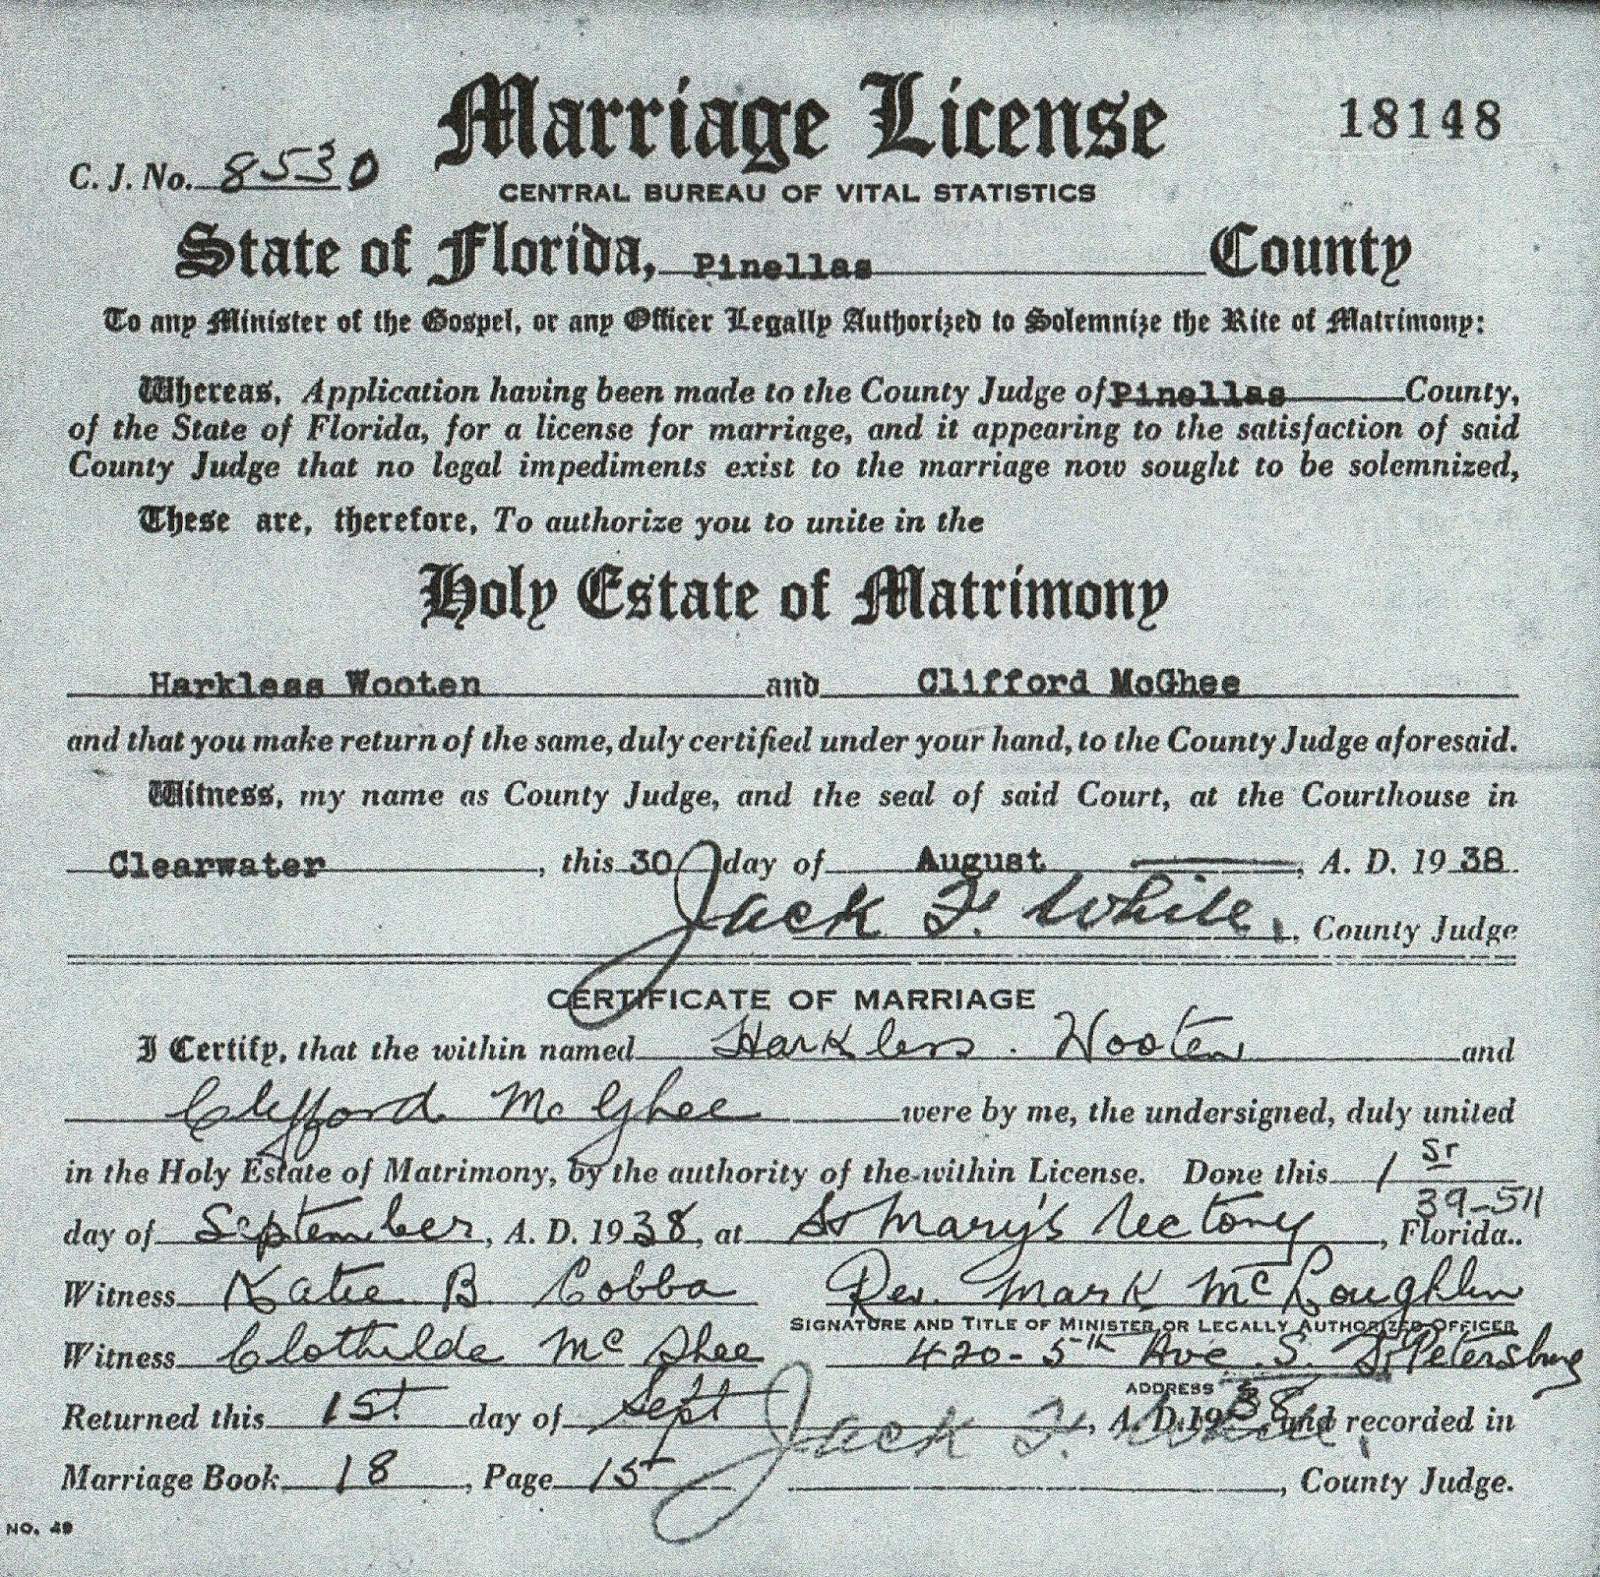 Marriage License 18148
C. J. No. 8530
CENTRAL BUREAU OF VITAL STATISTICS
State of Florida, Pinellas County
To any Minister of the Gospel, or any Officer Legally Authorized to Solemnize the Rite of Matrimony:
Whereas, Application having been made to the County Judge of Pinellas County,
of the State of Florida, for a license for marriage, and it appearing to the satisfaction of said
County Judge that no legal impediments exist to the marriage now sought to be solemnized,
These are, therefore, To authorize you to unite in the
Holy Estate of Matrimony
Harkless Wooten and Clifford McGhee
and that you make return of the same, duly certified under your hand, to the County Judge aforesaid.
Witness, my name as County Judge, and the seal of said Court, at the Courthouse in
Clearwater, this 30 day of August, A. D. 1938.
Jack F. White, County Judge
CERTIFICATE OF MARRIAGE
I Certify, that the within named Harkless Wooten and
Clifford McGhee were by me, the undersigned, duly united
in the Holy Estate of Matrimony, by the authority of the within License. Done this 1st
39-511
day of September, A. D. 1938, at St Mary's Rectory, Florida..
Witness Katie B Cobba Rev. Mark McLoughlin
SIGNATURE AND TITLE OF MINISTER OR LEGALLY AUTHORIZED OFFICER
Witness Clothilde McGhee 420-5th Ave S. St Petersburg
ADDRESS
Returned this 1st day of Sept, A. D. 1938, and recorded in
Jack F. White,
Marriage Book 18, Page 15, County Judge.
NO. 49